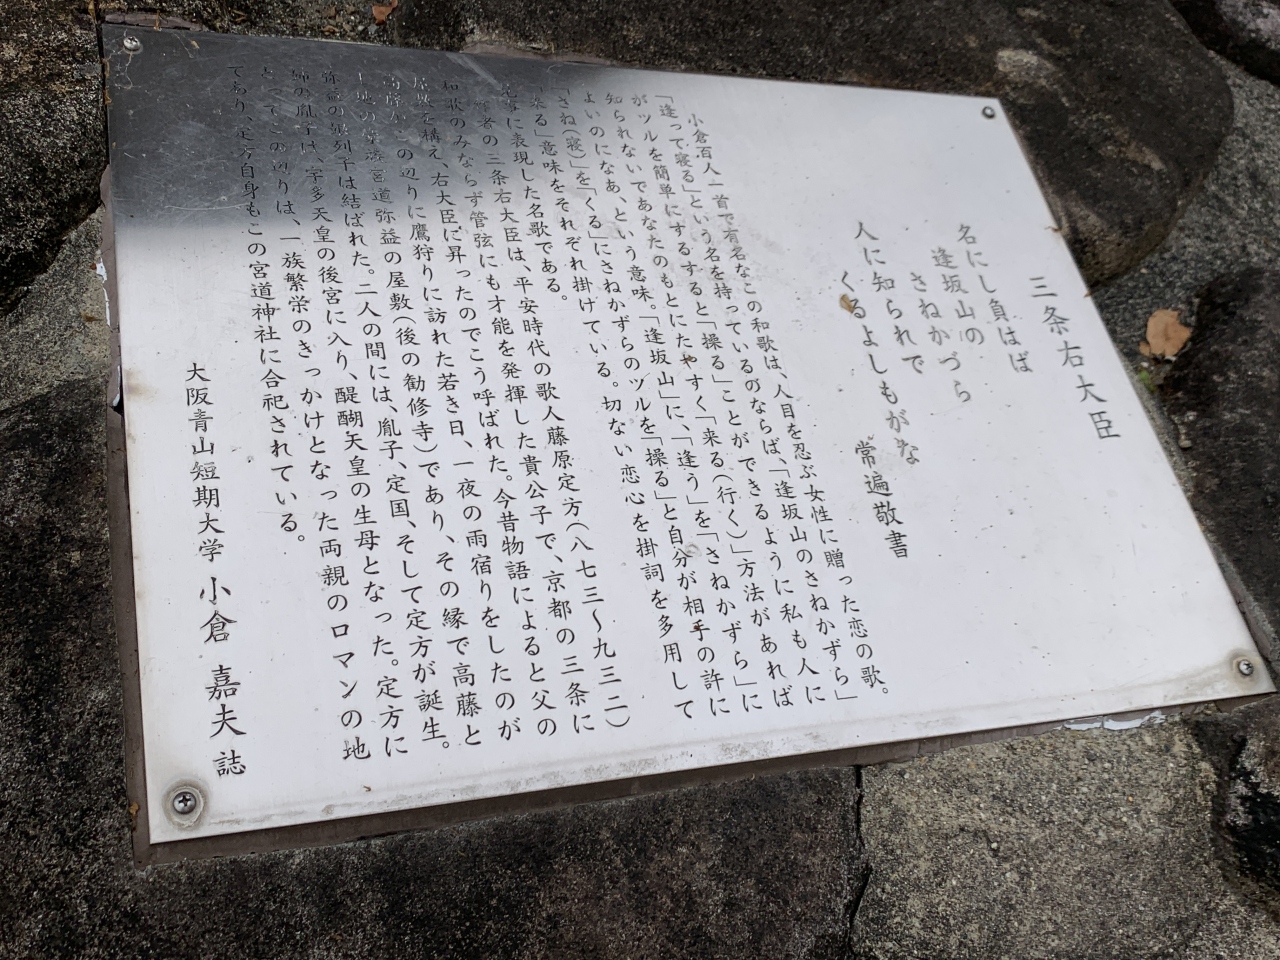 三条右大臣
名にし負はば
逢坂山の
さねかづら
人に知られで
くるよしもがな
常遍敬書
小倉百人一首で有名なこの和歌は、人目を忍ぶ女性に贈った恋の歌。
「逢って寝る」という名を持っているのならば、「逢坂山のさねかずら」
がツルを簡単にするすると「操る」ことができるように私も人に
知られないであなたのもとにたやすく「来る(行く)」方法があれば
よいのになあ、という意味。「逢坂山」に、「逢う」を「さねかずら」に
「さね(寝)」を「くる」にさねかずらのツルを「操る」と自分が相手の許に
「来る」意味をそれぞれ掛けている。切ない恋心を掛詞を多用して
に表現した名歌である。
作者の三条右大臣は、平安時代の歌人藤原定方(八七三〜九三二)
和歌のみならず管弦にも才能を発揮した貴公子で、京都の三条に
居館を構え、右大臣に昇ったのでこう呼ばれた。今昔物語によると父の
高藤がこの辺りに鷹狩りに訪れた若き日、一夜の雨宿りをしたのが
宮道弥益の屋敷(後の勧修寺)であり、その縁で高藤と
弥益の娘列子は結ばれた。二人の間には、胤子、定国、そして定方が誕生。
姉の胤子は、宇多天皇の後宮に入り、醍醐天皇の生母となった。定方に
とってこの辺りは、一族繁栄のきっかけとなった両親のロマンの地
であり、定方自身もこの宮道神社に合祀されている。
大阪青山短期大学 小倉 嘉夫 誌